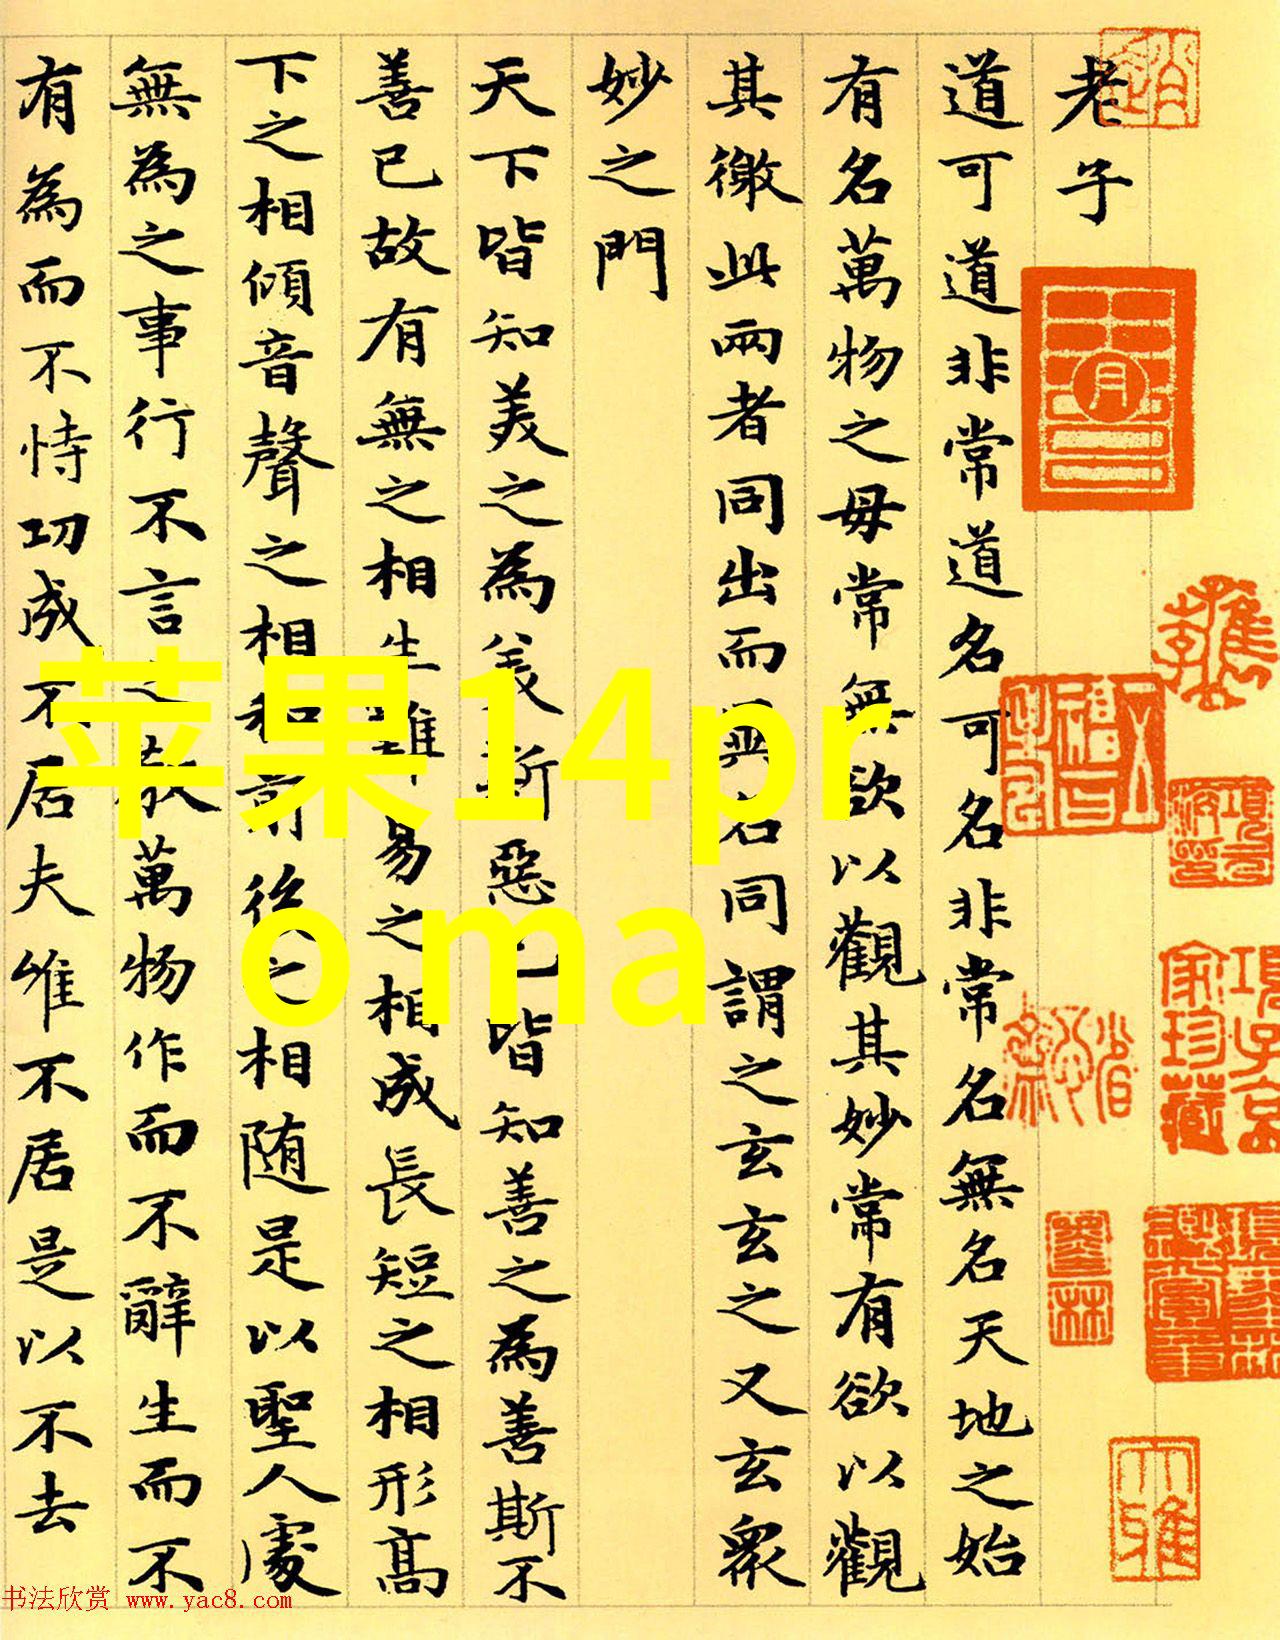 老子
道可道非常道名可名非常名無名天地之始
有名萬物之母常無欲以觀其妙常有欲以觀
其徼此兩者同出而異名同謂之玄玄之又玄衆
妙之門
天下皆知美之為美斯惡已皆知善之為善斯不
善已故有無之相生難易之相成長短之相形高
下之相傾音聲之相和前後之相随是以聖人處
無為之事行不言之教萬物作而不辭生而不
有為而不恃功成不居夫唯不居是以不去
項子京家珍藏
苹果14pr
o ma
书法欣赏 www.yac8.com